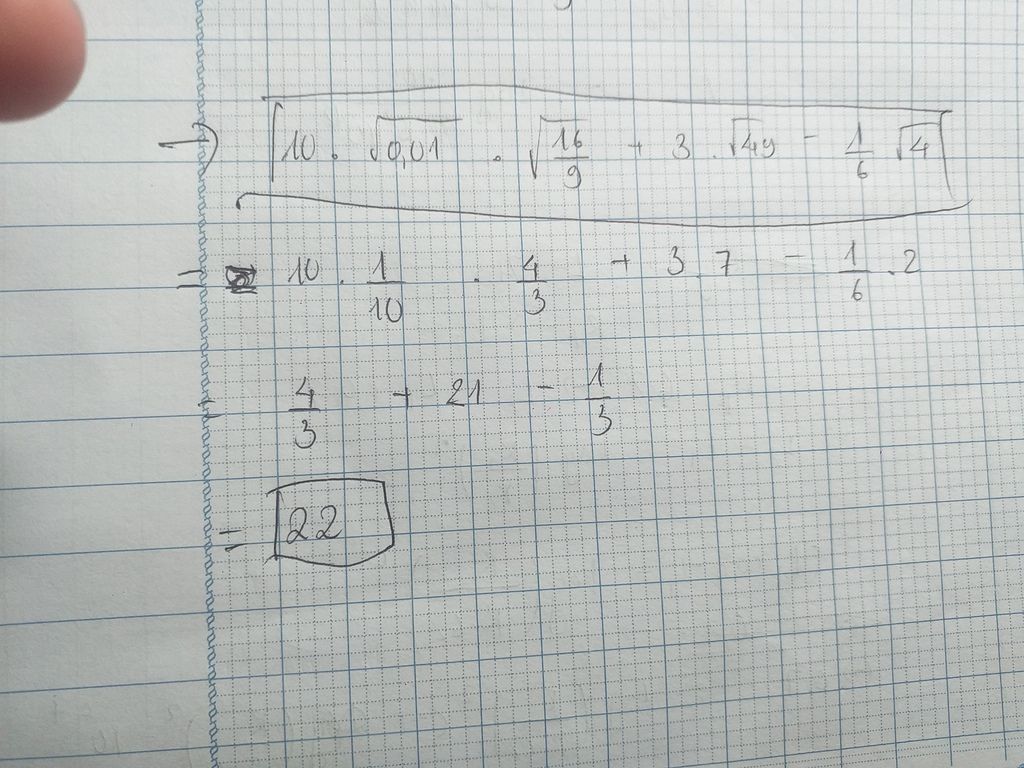 → 10 . √0,01 . √16/9 + 3 . √49 - 1/6 √4
= 10 . 1/10 . 4/3 + 3.7 - 1/6 . 2
= 4/3 + 21 - 1/3
= 22